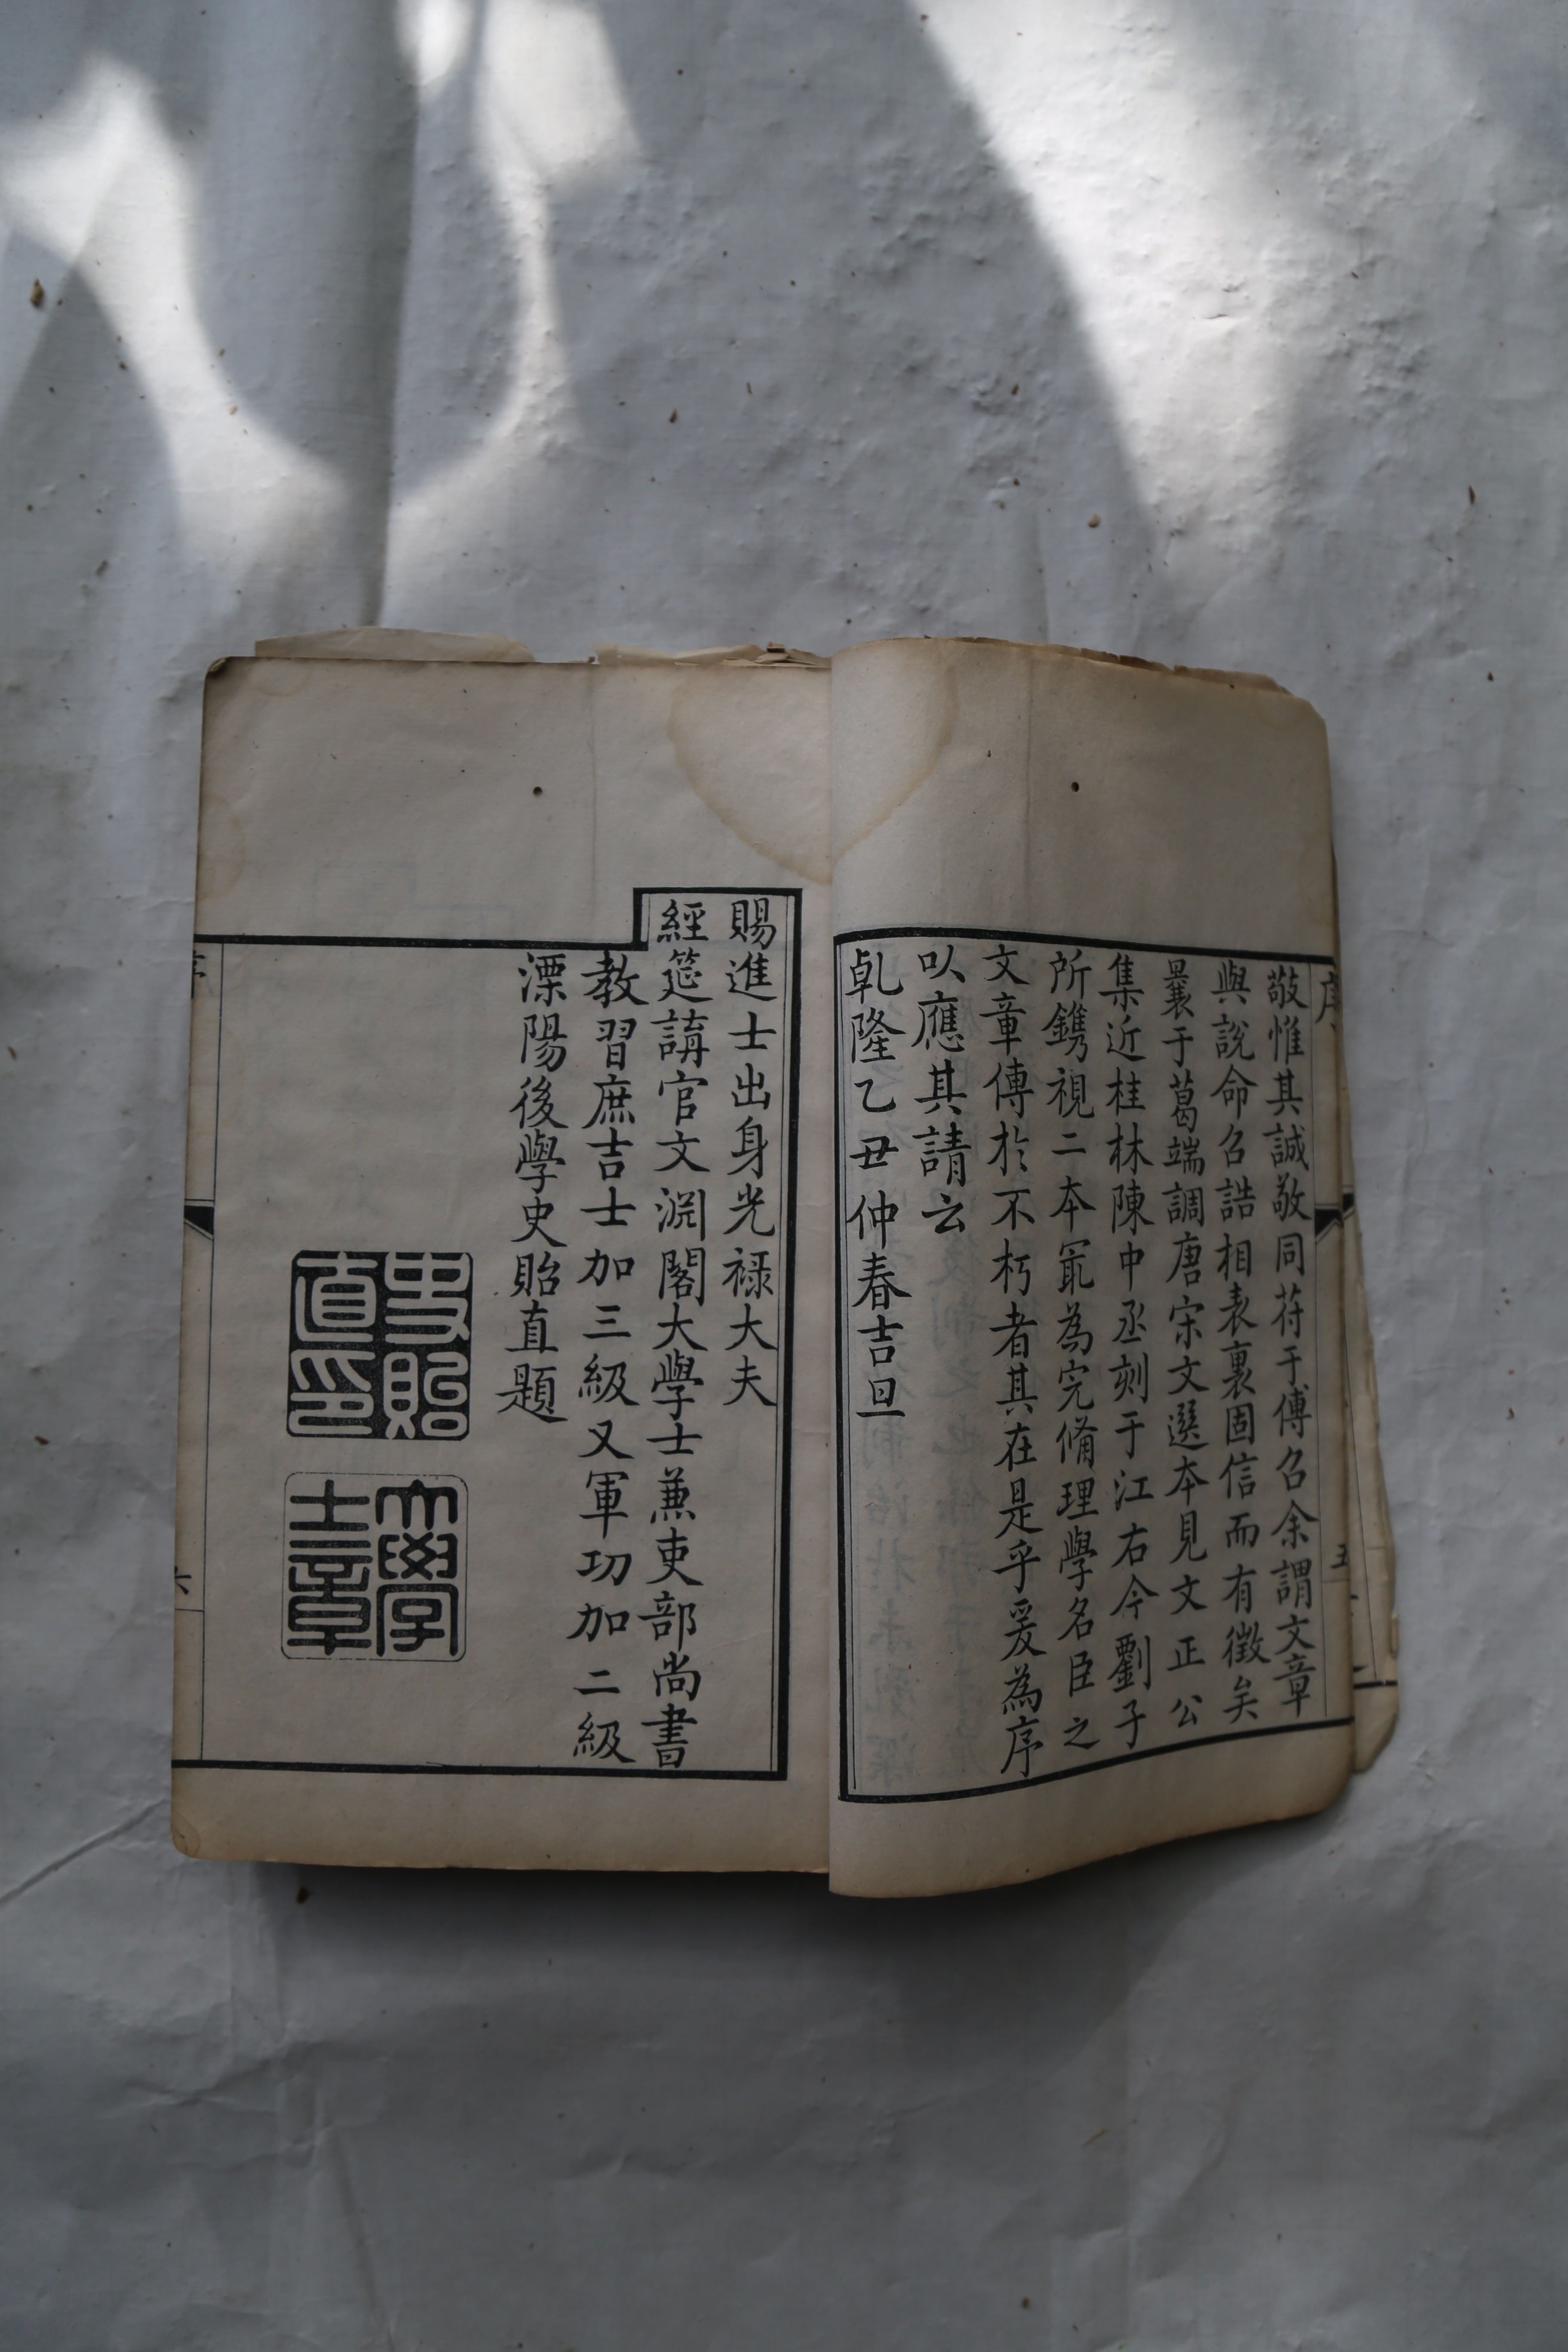 敬惟其誠敬同苻于傅召余謂文章
與說命召誥相表裏固信而有徵矣
曩于葛端調唐宋文選本見文正公
集近桂林陳中丞刻于江右今劉子
所鐫視二本冣為完脩理學名臣之
文章傳於不朽者其在是乎爰為序
以應其請云
乹隆乙丑仲春吉旦
賜進士出身光祿大夫
經筵講官文淵閣大學士蒹吏部尚書
教習庶吉士加三級又軍功加二級
溧陽後學史貽直題
史貽
直印
大學
士章
序
五
六